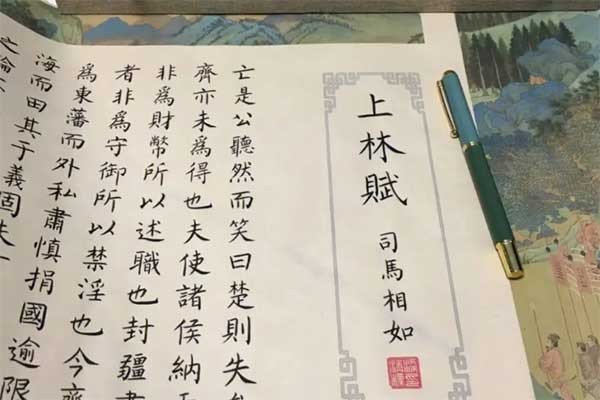 上林賦
司馬相如
亡是公聽然而笑曰楚則失
齊亦未爲得也夫使諸侯納
非爲財幣所以述職也封疆
者非爲守御所以禁淫也今齊
爲東藩而外私肅慎捐國逾限
海而田其于義固未
之論